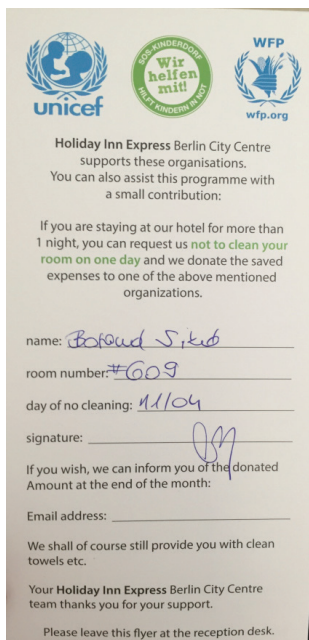 unicef
SOS-KINDERDORF
Wir
helfen
mit!
HILFT KINDERN IN NOT
WFP
wfp.org
Holiday Inn Express Berlin City Centre
supports these organisations.
You can also assist this programme with
a small contribution:
If you are staying at our hotel for more than
1 night, you can request us not to clean your
room on one day and we donate the saved
expenses to one of the above mentioned
organizations.
name:
room number: #609
day of no cleaning: 11/04
signature:
If you wish, we can inform you of the donated
Amount at the end of the month:
Email address:
We shall of course still provide you with clean
towels etc.
Your Holiday Inn Express Berlin City Centre
team thanks you for your support.
Please leave this flyer at the reception desk.